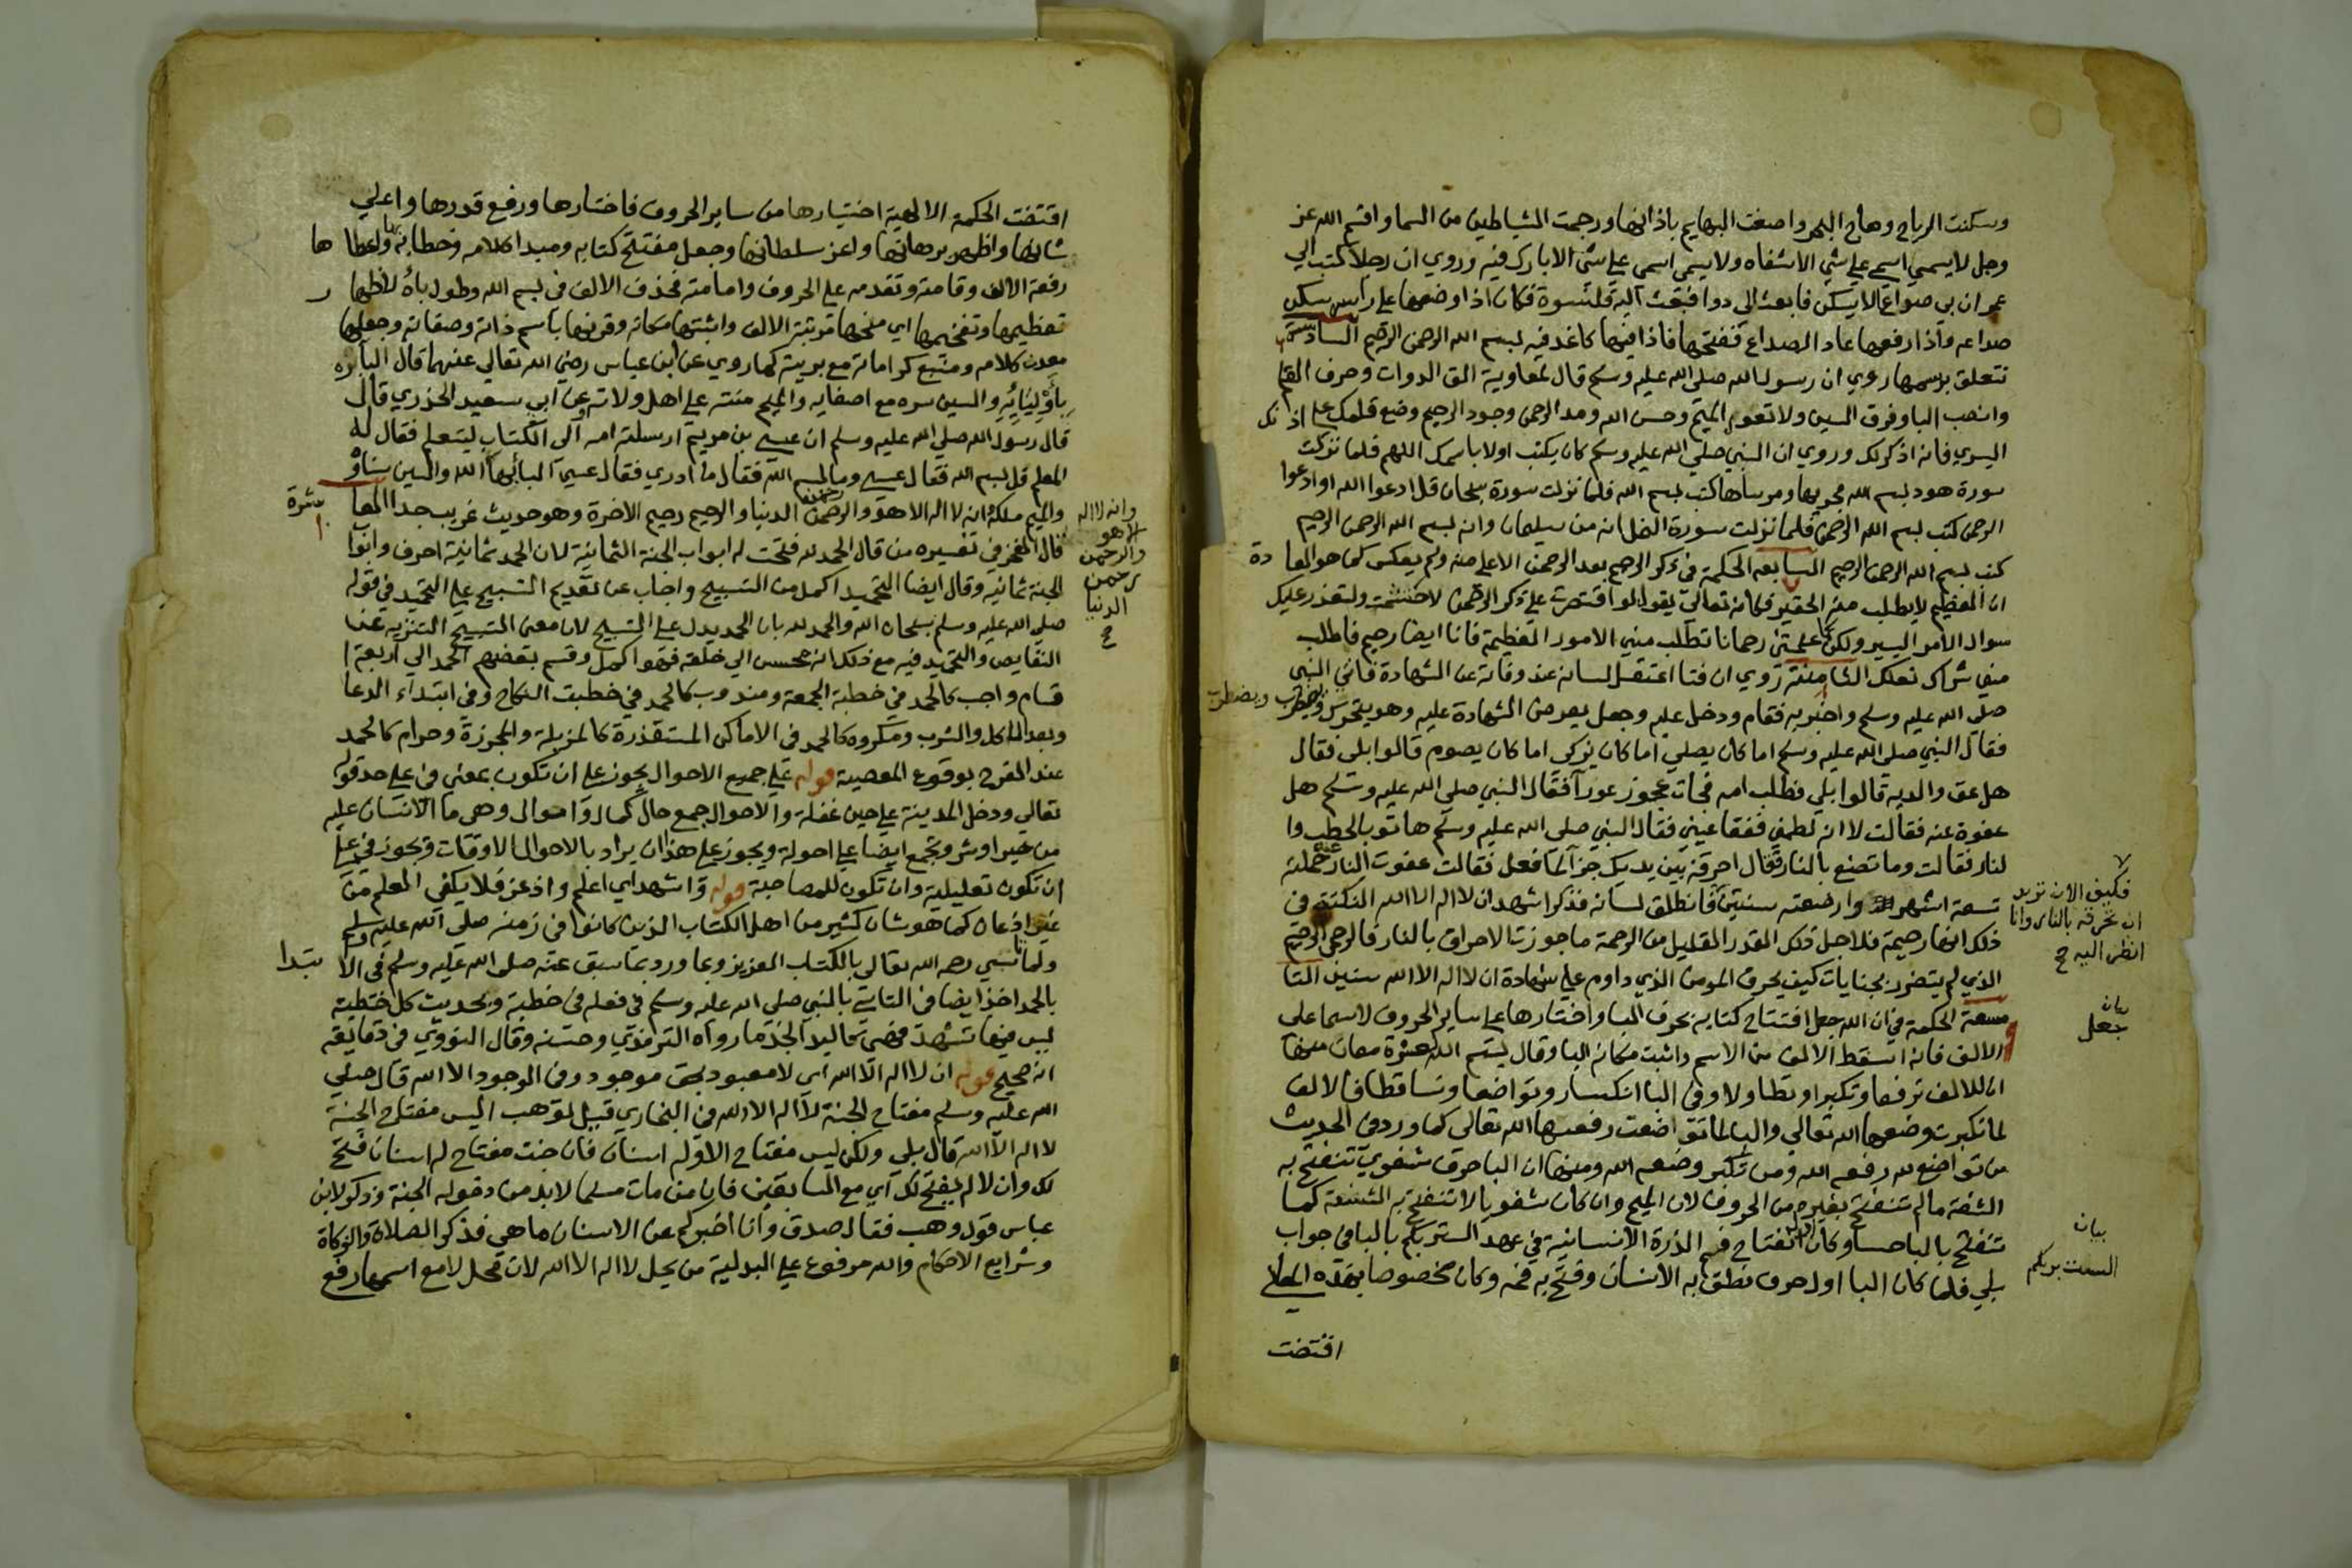 وسكنت الرياح وهاج البحر واصغت البهايم باذانها ورجمت الشياطين من السما واقسم الله عز
وجل لا يسمي اسمي علي شي الا شفاه ولا يسمى اسمى علي شي الا بارك فيه وروي ان رجلا كتب الي
عمر ان بي صداعا لا يسكن فابعث الى دوا فبعث اليه قلنسوة فكان اذا وضعها على راسه سكن
صداعه واذا رفعها عاد الصداع ففتحها فاذا فيها كاغد فيه بسم الله الرحمن الرحيم السادسة
تتعلق برسمها روي ان رسول الله صلى الله عليه وسلم قال لمعاوية الق الدوات وحرف القلم
وانصب البا وفرق السين ولا تعور الميم وحسن الله ومد الرحمن وجود الرحيم وضع قلمك على اذنك
اليسري فانه اذكر لك وروي ان النبي صلي الله عليه وسلم كان يكتب اولا باسمك اللهم فلما نزلت
سورة هود بسم الله مجريها ومرساها كتب بسم الله فلما نزلت سورة سبحان قل ادعوا الله او ادعوا
الرحمن كتب بسم الله الرحمن فلما نزلت سورة النمل انه من سليمان وانه بسم الله الرحمن الرحيم
كتب بسم الله الرحمن الرحيم السابعه الحكمة في ذكر الرحيم بعد الرحمن الاعلى منه ولم يعكس كما هو العادة
ان العظيم لا يطلب منه الحقير فكانه تعالى يقول لو اقتصرت علي ذكر الرحمن لاحتشمت ولتعذر عليك
سوال الامر اليسير ولكن كما علمتني رحمانا تطلب مني الامور العظيمة فانا ايضا رحيم فاطلب
مني شراك نعلك الثامنة روي ان فتا اعتقل لسانه عند وفاته عن الشهادة فاتي النبي
صلى الله عليه وسلم واخبر به فقام ودخل عليه وجعل يعرض الشهادة عليه وهو يتحرك ويضطرب
فقال النبي صلى الله عليه وسلم اما كان يصلي اما كان يزكى اما كان يصوم قالوا بلى فقال
هل عق والديه قالوا بلي فطلب امه فجات عجوز عورآ فقال النبي صلي الله عليه وسلم هل
عفوة عنه فقالت لا انه لطمني ففقا عيني فقال النبي صلى الله عليه وسلم هاتو بالحطب وا
لنار فقالت وما تصنع بالنار فقال احرقه بين يديك جزآ لما فعل فقالت عفوت النار حملته
تسعة اشهر وارضعته سنتين فانطلق لسانه فذكر اشهد ان لا اله الا الله النكتة في
ذلك انها رحيمة فلاجل ذلك القدر القليل من الرحمة ما جوزت الاحراق بالنار فالرحمن الرحيم
الذي لم يتضرر بجنايات كيف يحرق المومن الذي داوم علي شهادة ان لا اله الا الله سنين التا
سعة الحكمة في ان الله جعل افتتاح كتابه بحرف البا واختارها علي ساير الحروف لا سيما على
الالف فانه اسقط الالف من الاسم واثبت مكانه البا وقال بسم الله عشرة معان منها
ان للالف ترفعا وتكبرا وتطاولا وفي البا انكسار وتواضعا وتساقطا فالالف
لما تكبرت وضعها الله تعالي والبا لما تواضعت رفعها الله تعالى كما ورد في الحديث
من تواضع لله رفعه الله ومن تكبر وضعه الله ومنها ان البا حرف شفوي تنفتح به
الشفة ما لم تنفتح بغيره من الحروف لان الميم وان كان شفويا لا تنفتح به الشفة كما
تنفتح بالبا حسا وكان اول انفتاح فم الذرة الانسانية في عهد الست بربكم بالبا في جواب
بلي فلما كان البا اول حرف نطق به الانسان وفتح به فمه وكان مخصوصا بهذه المعاني
اقتضت
ويضطرب
فكيف الان تريد
ان تحرقه بالنار وانا
انظر اليه
بيان
جعل
بيان
الست بربكم
اقتضت الحكمة الالهية اختيارها من ساير الحروف فاختارها ورفع قدرها واعلي
شانها واظهر برهانها واعز سلطانها وجعل مفتتح كتابه ومبدا كلامه وخطابه واعطاها
رفعة الالف وقامته وتقدمه علي الحروف وامامته فحذف الالف في بسم الله وطول باه لاظهار
تعظيمها وتفخيمها اي منحها مرتبة الالف واثبتها مكانه وقرنها باسم ذاته وصفاته وجعلها
معدن كلامه ومنبع كراماته مع بريته كما روي عن ابن عباس رضي الله تعالي عنهما قال البا بره
باوليائه والسين سره مع اصفيايه والميم منته علي اهل ولاته وعن ابي سعيد الخذري قال
قال رسول الله صلي الله عليه وسلم ان عيسي بن مريم ارسلته امه الى الكتاب ليتعلم فقال له
المعلم قل بسم الله فقال عيسي وما بسم الله فقال ما ادري فقال عيسي البا بها الله والسين سناؤه
والميم ملكه انه لا اله الا هو والرحمن رحمن الدنيا والرحيم رحيم الاخرة وهو حديث غريب جدا العاشرة
قال الفخر في تفسيره من قال الحمد لله فتحت له ابواب الجنة الثمانية لان الحمد ثمانية احرف وابوا
الجنة ثمانية وقال ايضا التحميد اكمل من التسبيح واجاب عن تقديم التسبيح علي التحميد في قوله
صلي الله عليه وسلم سبحان الله والحمد لله بان الحمد يدل علي التسبيح لان معنى التسبيح التنزيه عن
النقايص والتحميد فيه مع ذلك انه محسن الي خلقه فهو اكمل وقسم بعضهم الحمد الي اربعة ا
قسام واجب كالحمد في خطبة الجمعة ومندوب كالحمد في خطبت النكاح وفي ابتداء الدعا
وبعد الاكل والشرب ومكروه كالحمد في الاماكن المستقذرة كالمزبلة والمجزرة وحرام كالحمد
عند الفرح بوقوع المعصية قوله علي جميع الاحوال يجوز علي ان تكون بمعنى في علي حد قوله
تعالي ودخل المدينة علي حين غفلة والاحوال جمع حال كمال واموال وهي ما الانسان عليه
من خير او شر وتجمع ايضا علي احولة ويجوز علي هذا ان يراد بالاحوال الاوقات ويجوز في علي
ان تكون تعليلية وان تكون للمصاحبة قوله واشهد اي اعلم واذعن فلا يكفي العلم من
غير اذعان كما هو شان كثير من اهل الكتاب الذين كانوا في زمنه صلي الله عليه وسلم
ولما تاسي رحمه الله تعالي بالكتاب العزيز وبما ورد بما سبق عنه صلي الله عليه وسلم في الابتدا
بالحمد اخذ ايضا في التاسي بالنبي صلي الله عليه وسلم في فعله في خطبه وبحديث كل خطبة
ليس فيها تشهد فهي كاليد الجذما رواه الترمذي وحسنه وقال النووي في دقايقه
انه صحيح قوله ان لا اله الا الله اي لا معبود بحق موجود وفي الوجود الا الله قال صلي
الله عليه وسلم مفتاح الجنة لا اله الا الله في البخاري قيل لوهب اليس مفتاح الجنة
لا اله الا الله قال بلي ولكن ليس مفتاح الا وله اسنان فان جئت مفتاح له اسنان فتح
لك وان لا لم يفتح لك اي مع السابقين فان من مات مسلما لا بد من دخوله الجنة وذكر لابن
عباس قول وهب فقال صدق وانا اخبركم عن الاسنان ما هي فذكر الصلاة والزكاة
وشرايع الاحكام والله مرفوع علي البدلية من محل لا اله الا الله لان محل لا مع اسمها رفع
وانه لا اله
الا هو
والرحمن
رحمن
الدنيا